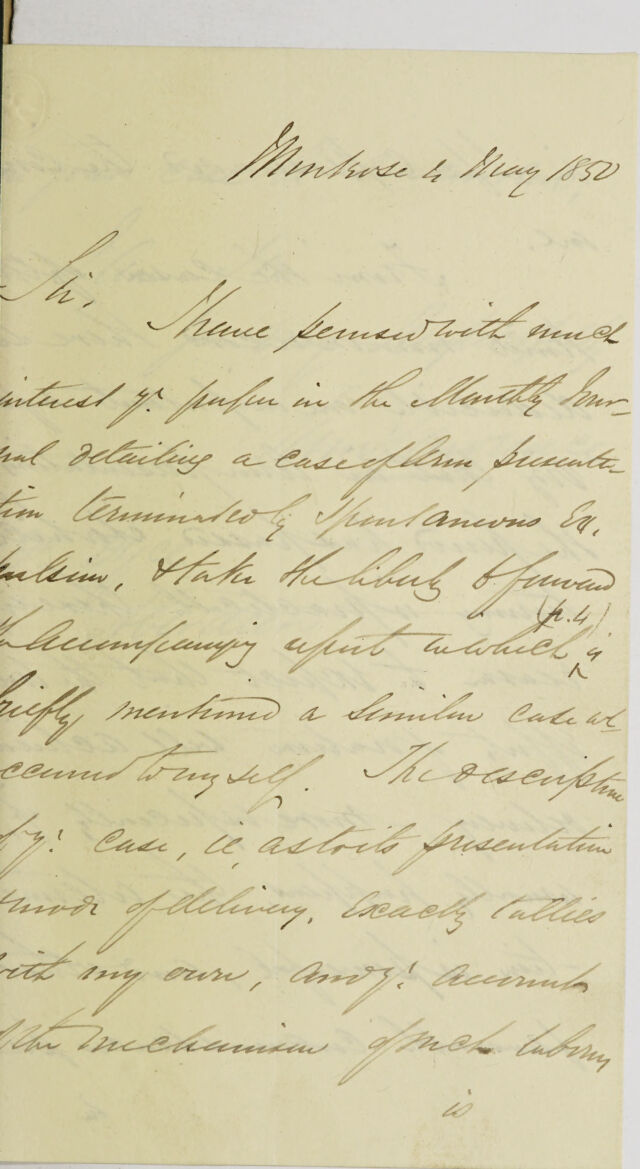 Montrose 4 May 1850
Sir,
I have perused with much
interest yr. paper in the Monthly Jour-
nal detailing a case of Arm presenta-
tion terminated by Spontaneous Ex.
pulsion, & take the liberty to forward
the accompanying report in which (p.4) is
briefly mentioned a similar case wh
occurred to myself. The description
of yr. case, ie, as to its presentation
& mode of delivery, exactly tallies
with my own, and yr. account
of the mechanism of such labour
is